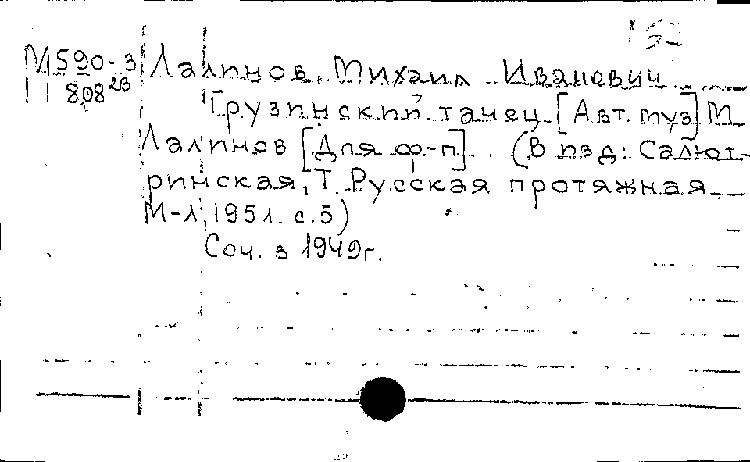 М590-3 Лапинов, Михаил Иванович
808 23 Грузинский танец [Авт. муз] М
Лапинов [Для ф-п]. (В изд: Салют-
ринская, Т. Русская протяжная
М-Л, 1951. с.5)
Соч. з 1949г.